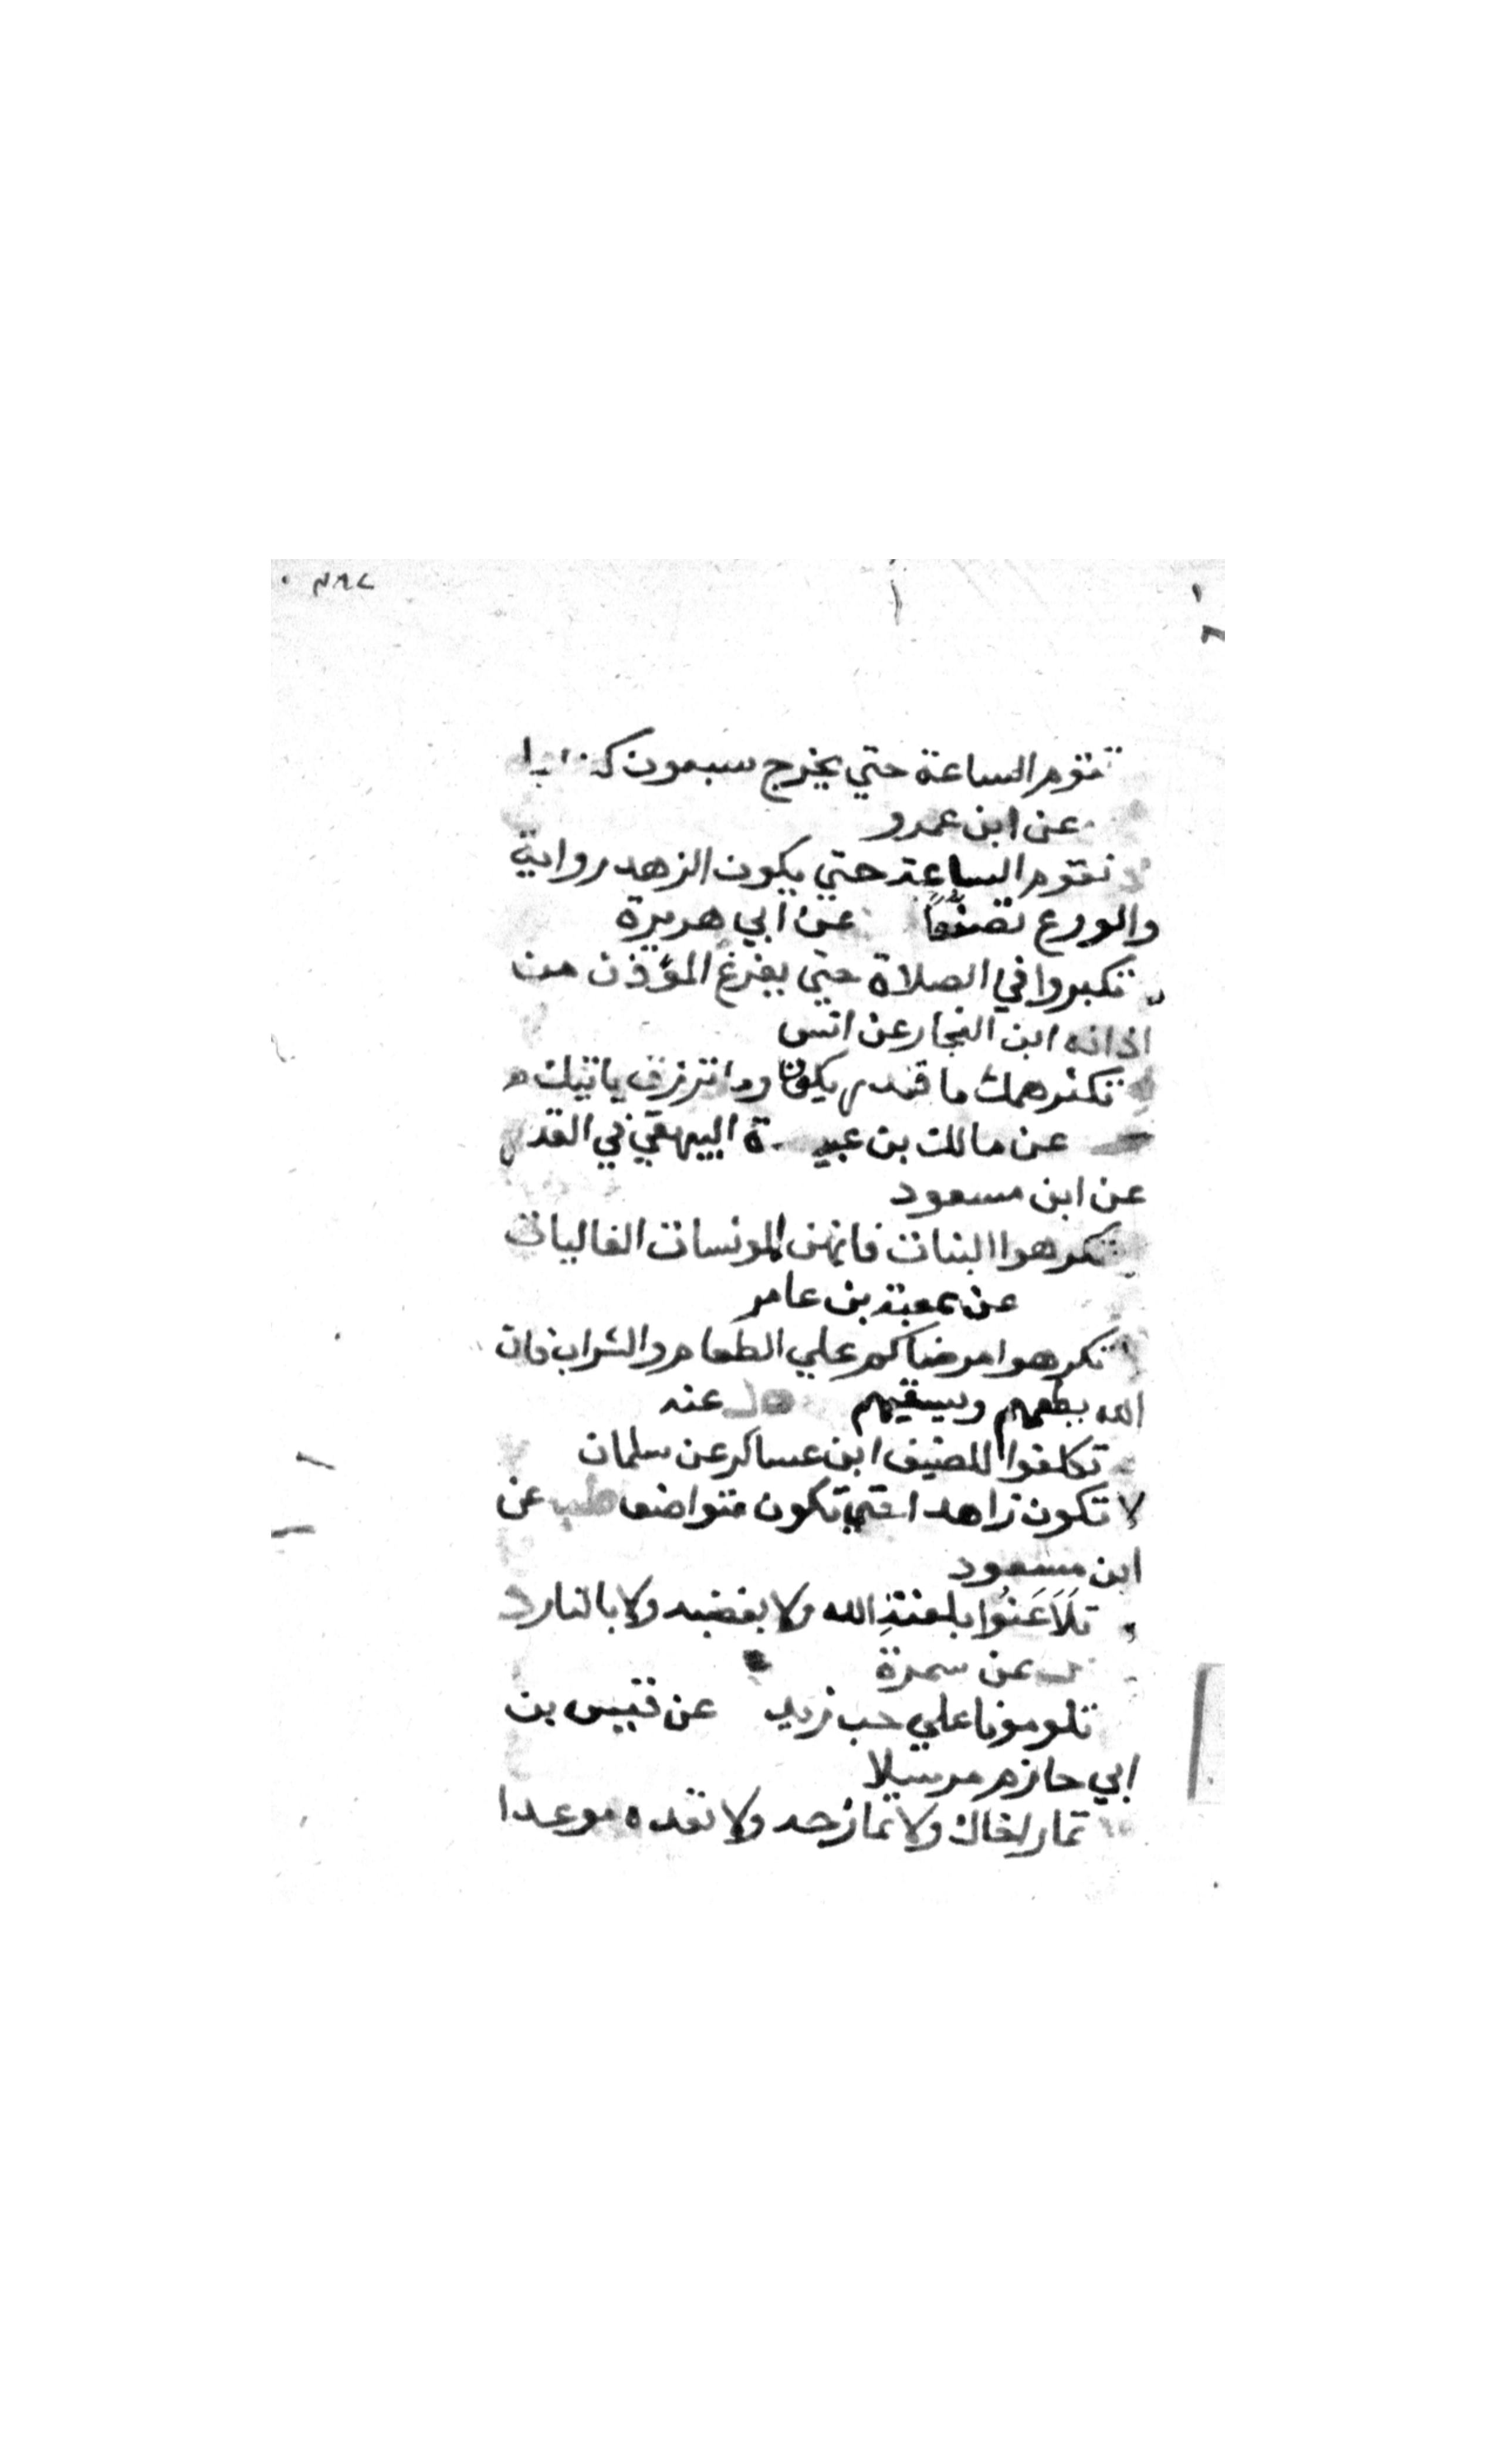 تقوم الساعة حتي يخرج سبعون كذابا
عن ابن عمرو
تقوم الساعة حتي يكون الزهد رواية
والورع تصنعًا عن ابي هريرة
تكبروا في الصلاة حتي يفرغ المؤذن من
اذانه ابن النجار عن انس
تكثر همك ما قدر يكون وما ترزق ياتيك
عن مالك بن البيهقي في القدر
عن ابن مسعود
تكرهوا البنات فانهن المونسات الغاليات
عن عقبة بن عامر
تكرهوا مرضاكم علي الطعام والشراب فان
الله يطعمهم ويسقيهم عنه
تكلفوا للضيف ابن عساكر عن سلمان
لا تكون زاهدا حتي تكون متواضعا طب عن
ابن مسعود
تلَاعَنُوا بلعنةِ الله ولا بغضبه ولا بالنار د
عن سمرة
تلومونا علي حب زيد عن قيس بن
ابي حازم مرسلا
تمار اخاك ولا تمازحه ولا تعده موعدا